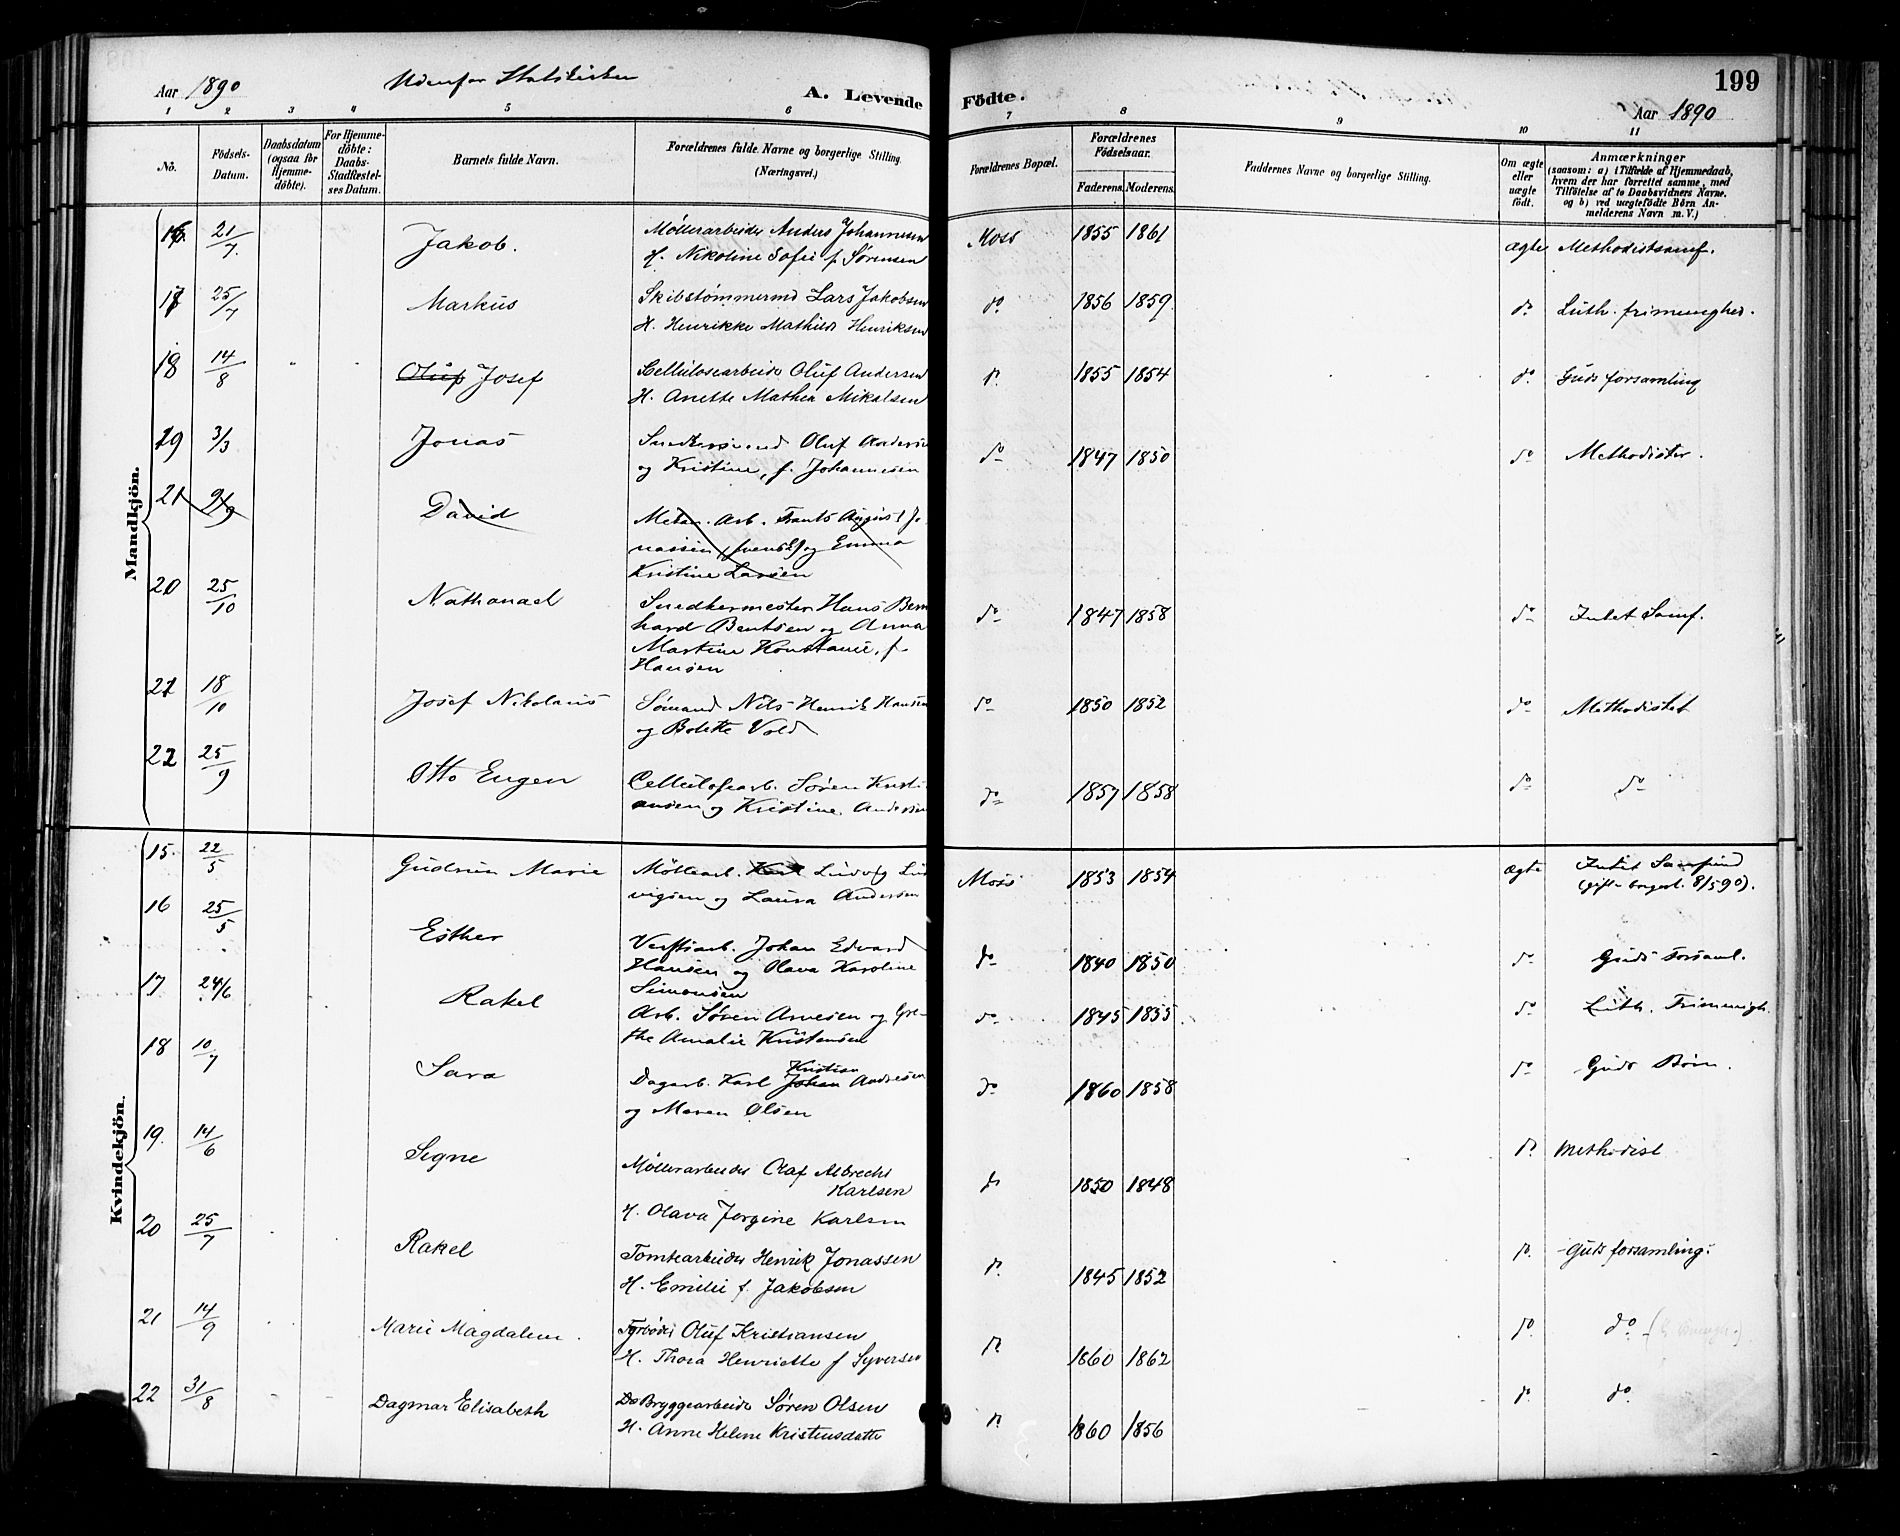 Aar 1890 Udenfor Statskirken A. Levende Födte. 199
Aar 1890
1 2 3 4 5 6 7 8 9 10 11
No. Födsels-Datum. Daabsdatum (ogsaa for Hjemmedöbte). For Hjemmedöbte: Daabs-Stadfæstelses Datum. Barnets fulde Navn. Forældrenes fulde Navne og borgerlige Stilling. (Næringsvei.) Forældrenes Bopæl. Forældrenes Födselsaar. Faderens. Moderens. Faddernes Navne og borgerlige Stilling. Om ægte eller uægte födt. Anmærkninger (saasom: a) i Tilfælde af Hjemmedaab, hvem der har forrettet samme, med Tilföielse af to Daabsvidners Navne. og b) ved uægtefödte Börn Anmelderens Navn m. V.)
Mandkjön.
16 21/7 Jakob. Møllerarbeider Anders Johannesen Moss 1855 1861 ægte Methodistsamf.
H. Nikoline Sofie f. Sørensen
17 25/7 Markus Skibstømmermd Lars Jakobsen do 1856 1859 do Luth. frimenighed.
H. Henrikke Mathilde Henriksen
18 14/8 Oluf Josef Cellulosearbeider Oluf Andersen do 1855 1854 do Guds forsamling
H. Anette Mathea Mikalsen
19 3/3 Jonas Snedkersvend Oluf Andersen do 1847 1850 do Methodister.
og Kristine, f. Johannesen
21 9/9 David Mekan. Arb. Frants August Jo-
nassen (svensk) og Emma
Kristine Larsen
20 25/10 Nathanael Snedkermester Hans Bern do 1847 1858 do Intet Samf.
hard Bentsen og Anna
Martine Konstance, f.
Hansen
21 18/10 Josef Nikolaus Sømand Nils Henrik Hansen do 1850 1852 do Methodistet
og Bolette Vold
22 25/9 Otto Eugen Cellulosearb. Søren Kristi do 1857 1858 do do
ansen og Kristine Andersen
Kvindekjön.
15. 22/5 Gudrun Marie Møllearb. Ludvig Lud Moss 1853 1854 ægte Intet Samfund
vigsen og Laura Andersen (gift borgerl. 8/5 90).
16 25/5 Esther Verftsarb. Johan Edvard do 1840 1850 do Guds Forsaml.
Hansen og Olava Karoline
Simonsen
17 24/6 Rakel Arb. Søren Arnesen og Gre- do 1845 1855 do Luth. Frimenigh.
the Amalie Kristensen
18 10/7 Sara Dagarb. Karl Johan Kristian Andresen do 1860 1858 do Guds Børn.
og Maren Olsen
19. 14/6 Signe Møllerarbeider Olaf Albrecht do 1850 1848 do Methodist
Karlsen
H. Olava Jørgine Karlsen
20 25/7 Rakel Tomtearbeider Henrik Jonassen do 1845 1852 do Guds forsamling.
H. Emilie f. Jakobsen
21 14/9 Marie Magdalene. Fyrbøder Oluf Kristiansen do 1860 1862 do do
H. Thora Henriette f Syversen
22 31/8 Dagmar Elisabeth Do Bryggearbeider Søren Olsen do 1860 1856 do do
H. Anne Helene Kristensdatte